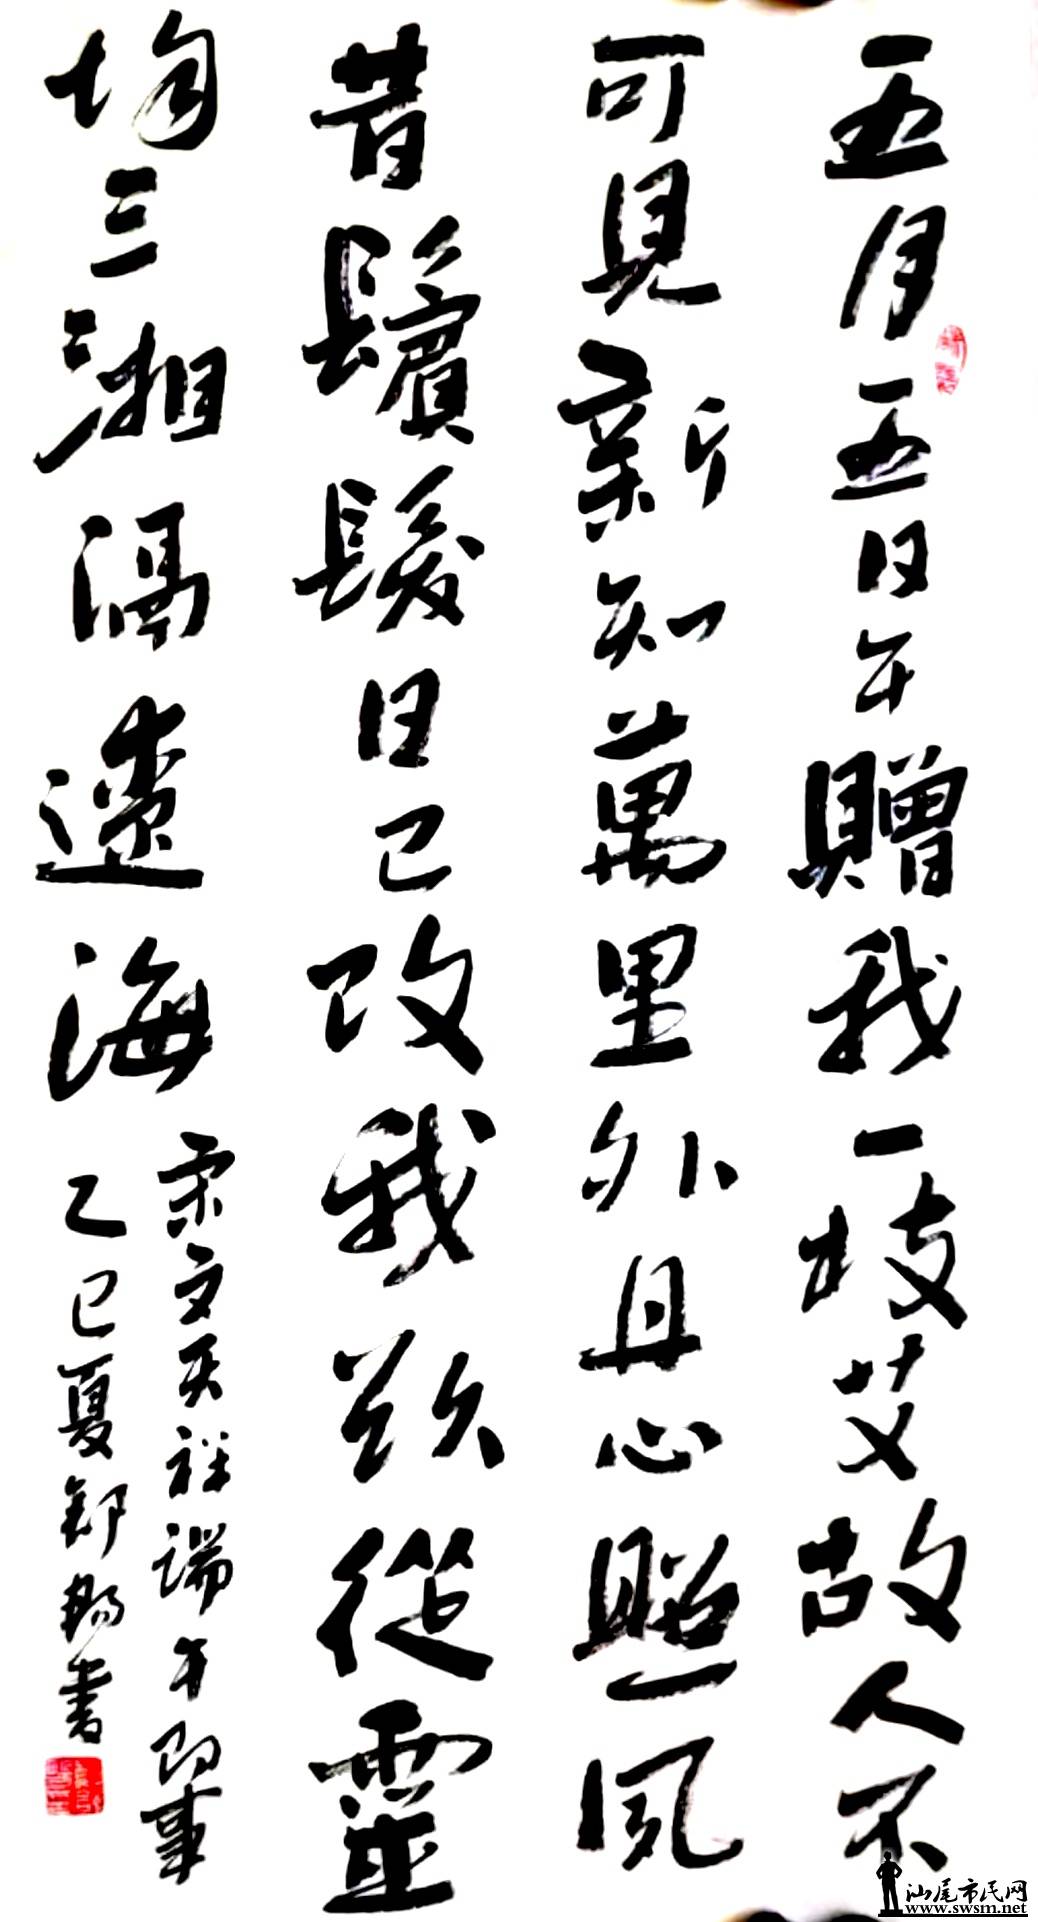 五月五日午贈我一枝艾故人不
可見新知萬里外丹心照夙
昔鬢髮日已改我欲從靈
均三湘隔遼海
宋文天祥端午即事
乙巳夏鄒楊書
汕尾市民网
www.swsm.net